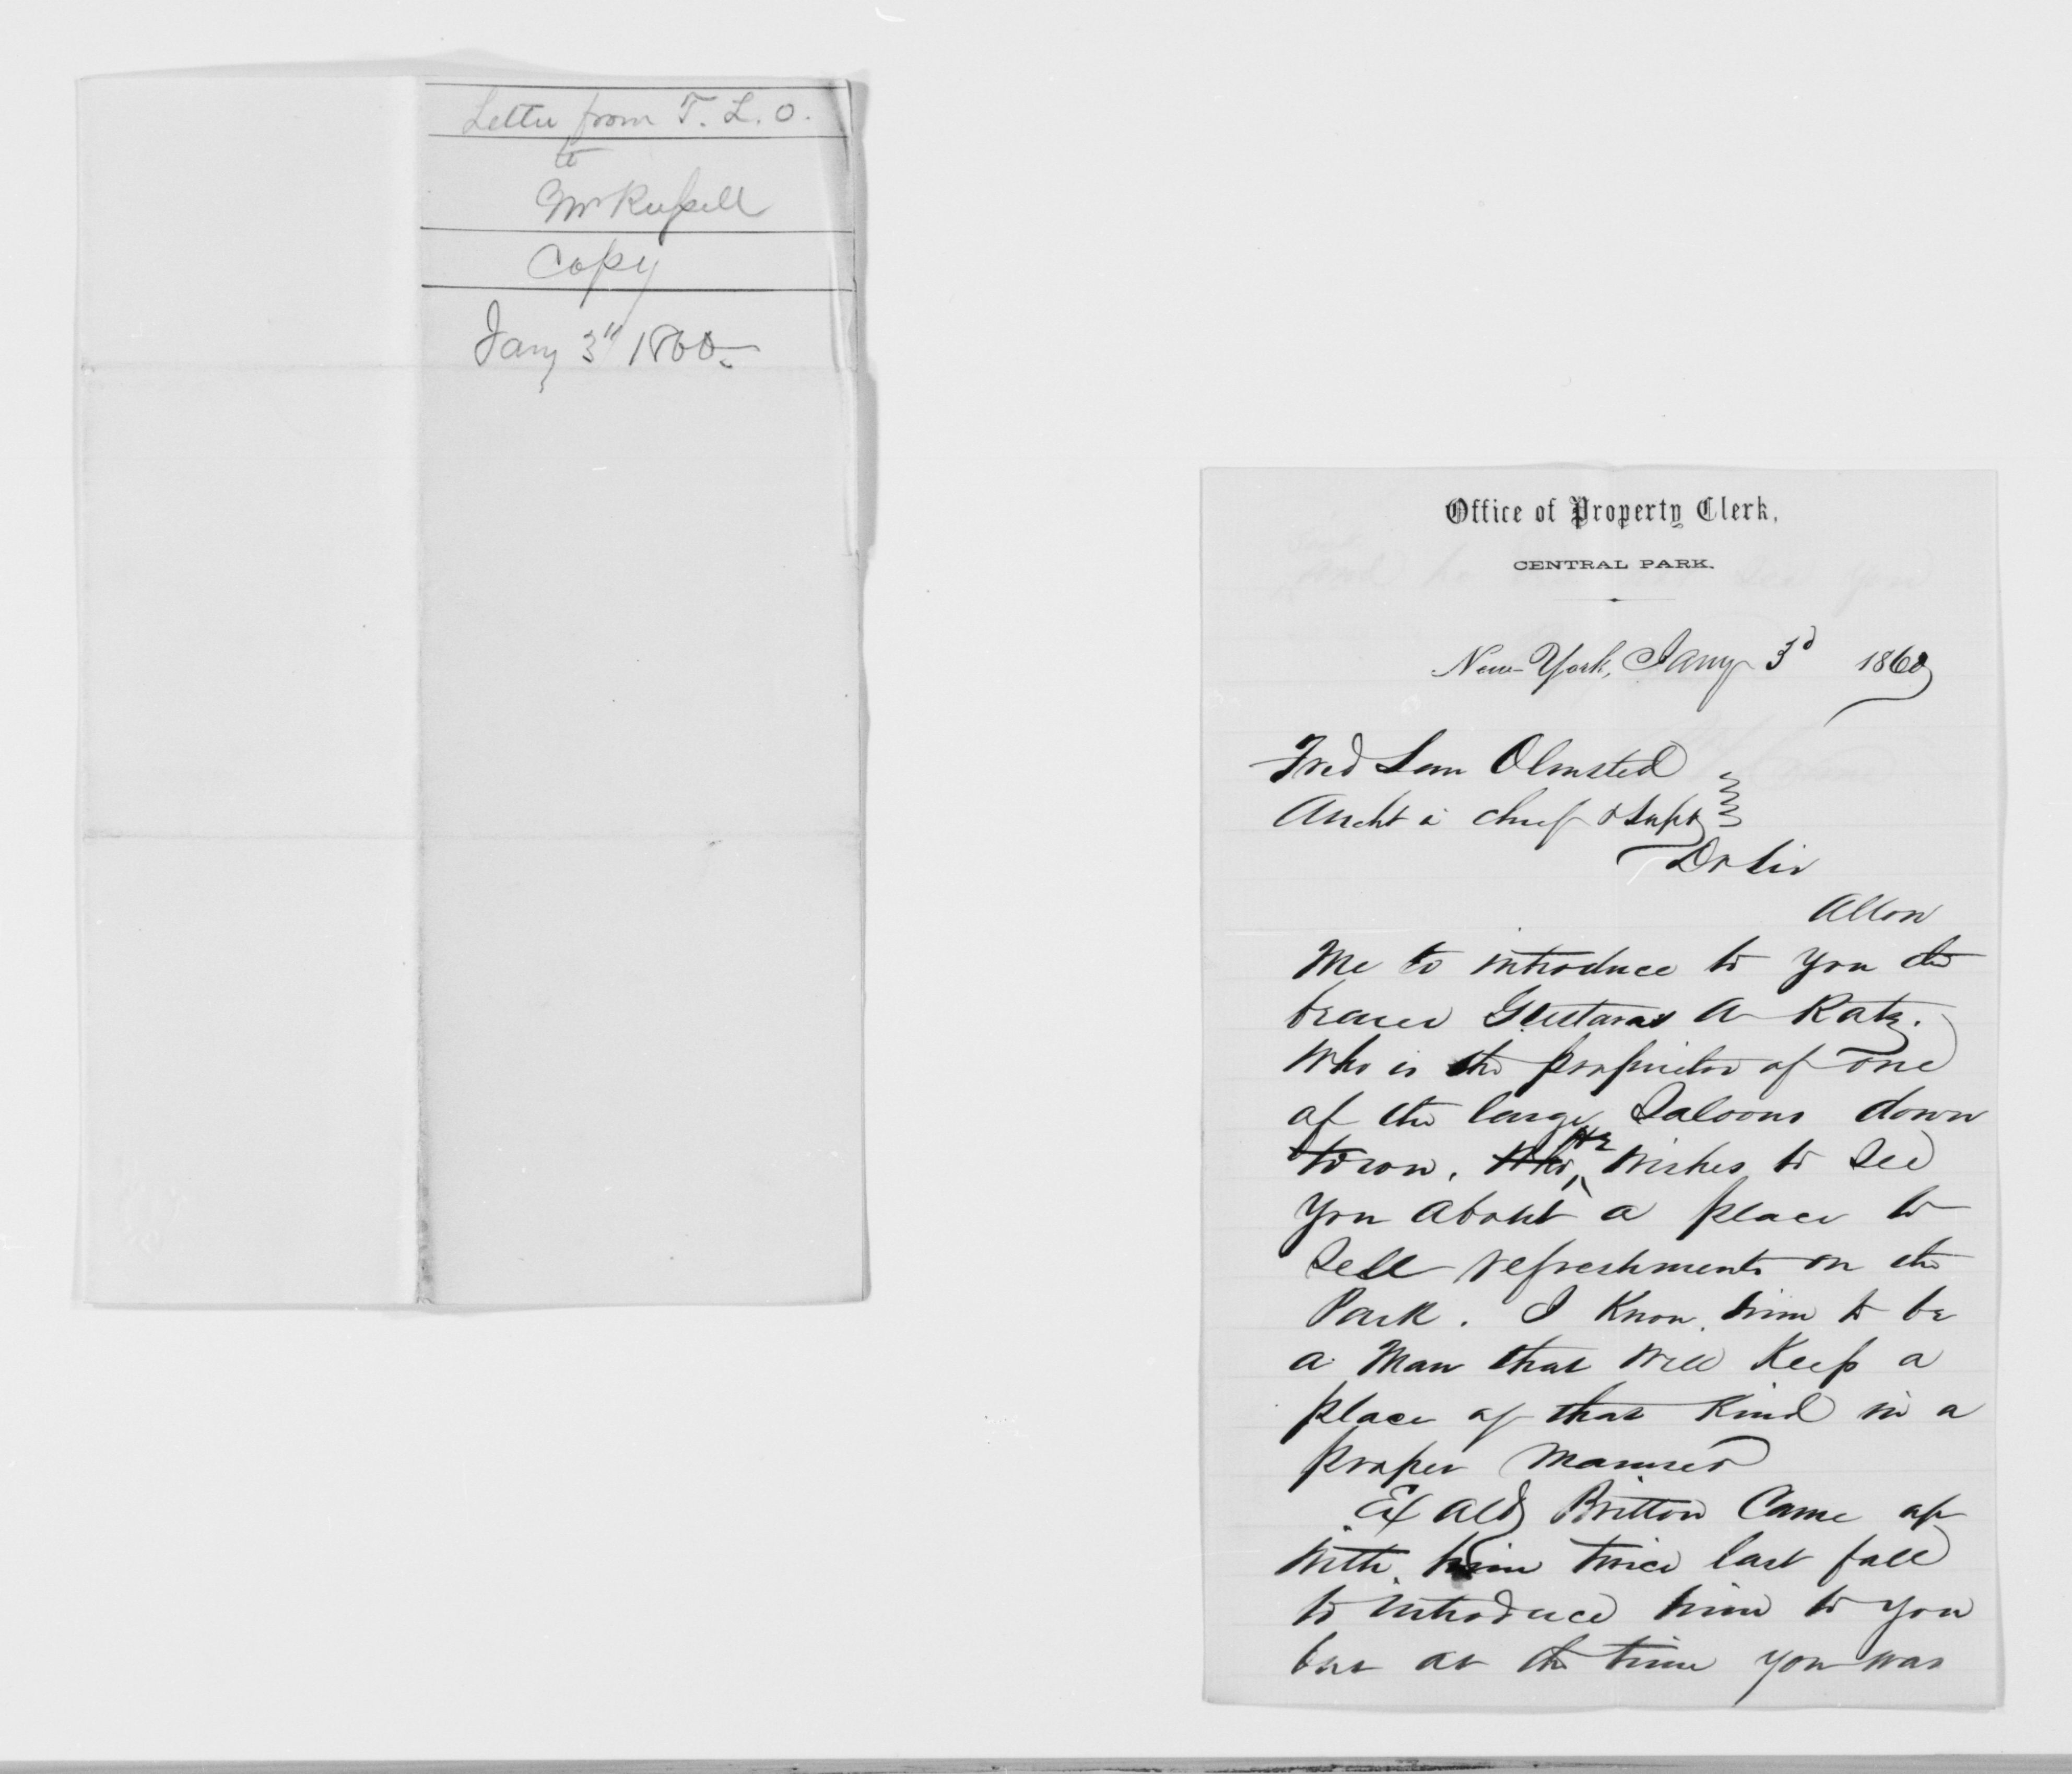 Letter from F. L. O.
to
Mr Russell
Copy
Jany 3" 1860.
Office of Property Clerk,
CENTRAL PARK.
New-York, Jany 3d 1860
Fred Law Olmsted
Archt in chief & Supt
Dr Sir
Allow
Me to introduce to you the
bearer Gustavas A Katz.
Who is the proprietor of one
of the large Saloons down
town. Who He Wishes to See
You about a place to
Sell refreshments on the
Park. I Know him to be
a Man that Will Keep a
place of that Kind in a
proper Manner
Ex Ald Britton Came up
With him twice last fall
to introduce him to you
but at the time you was